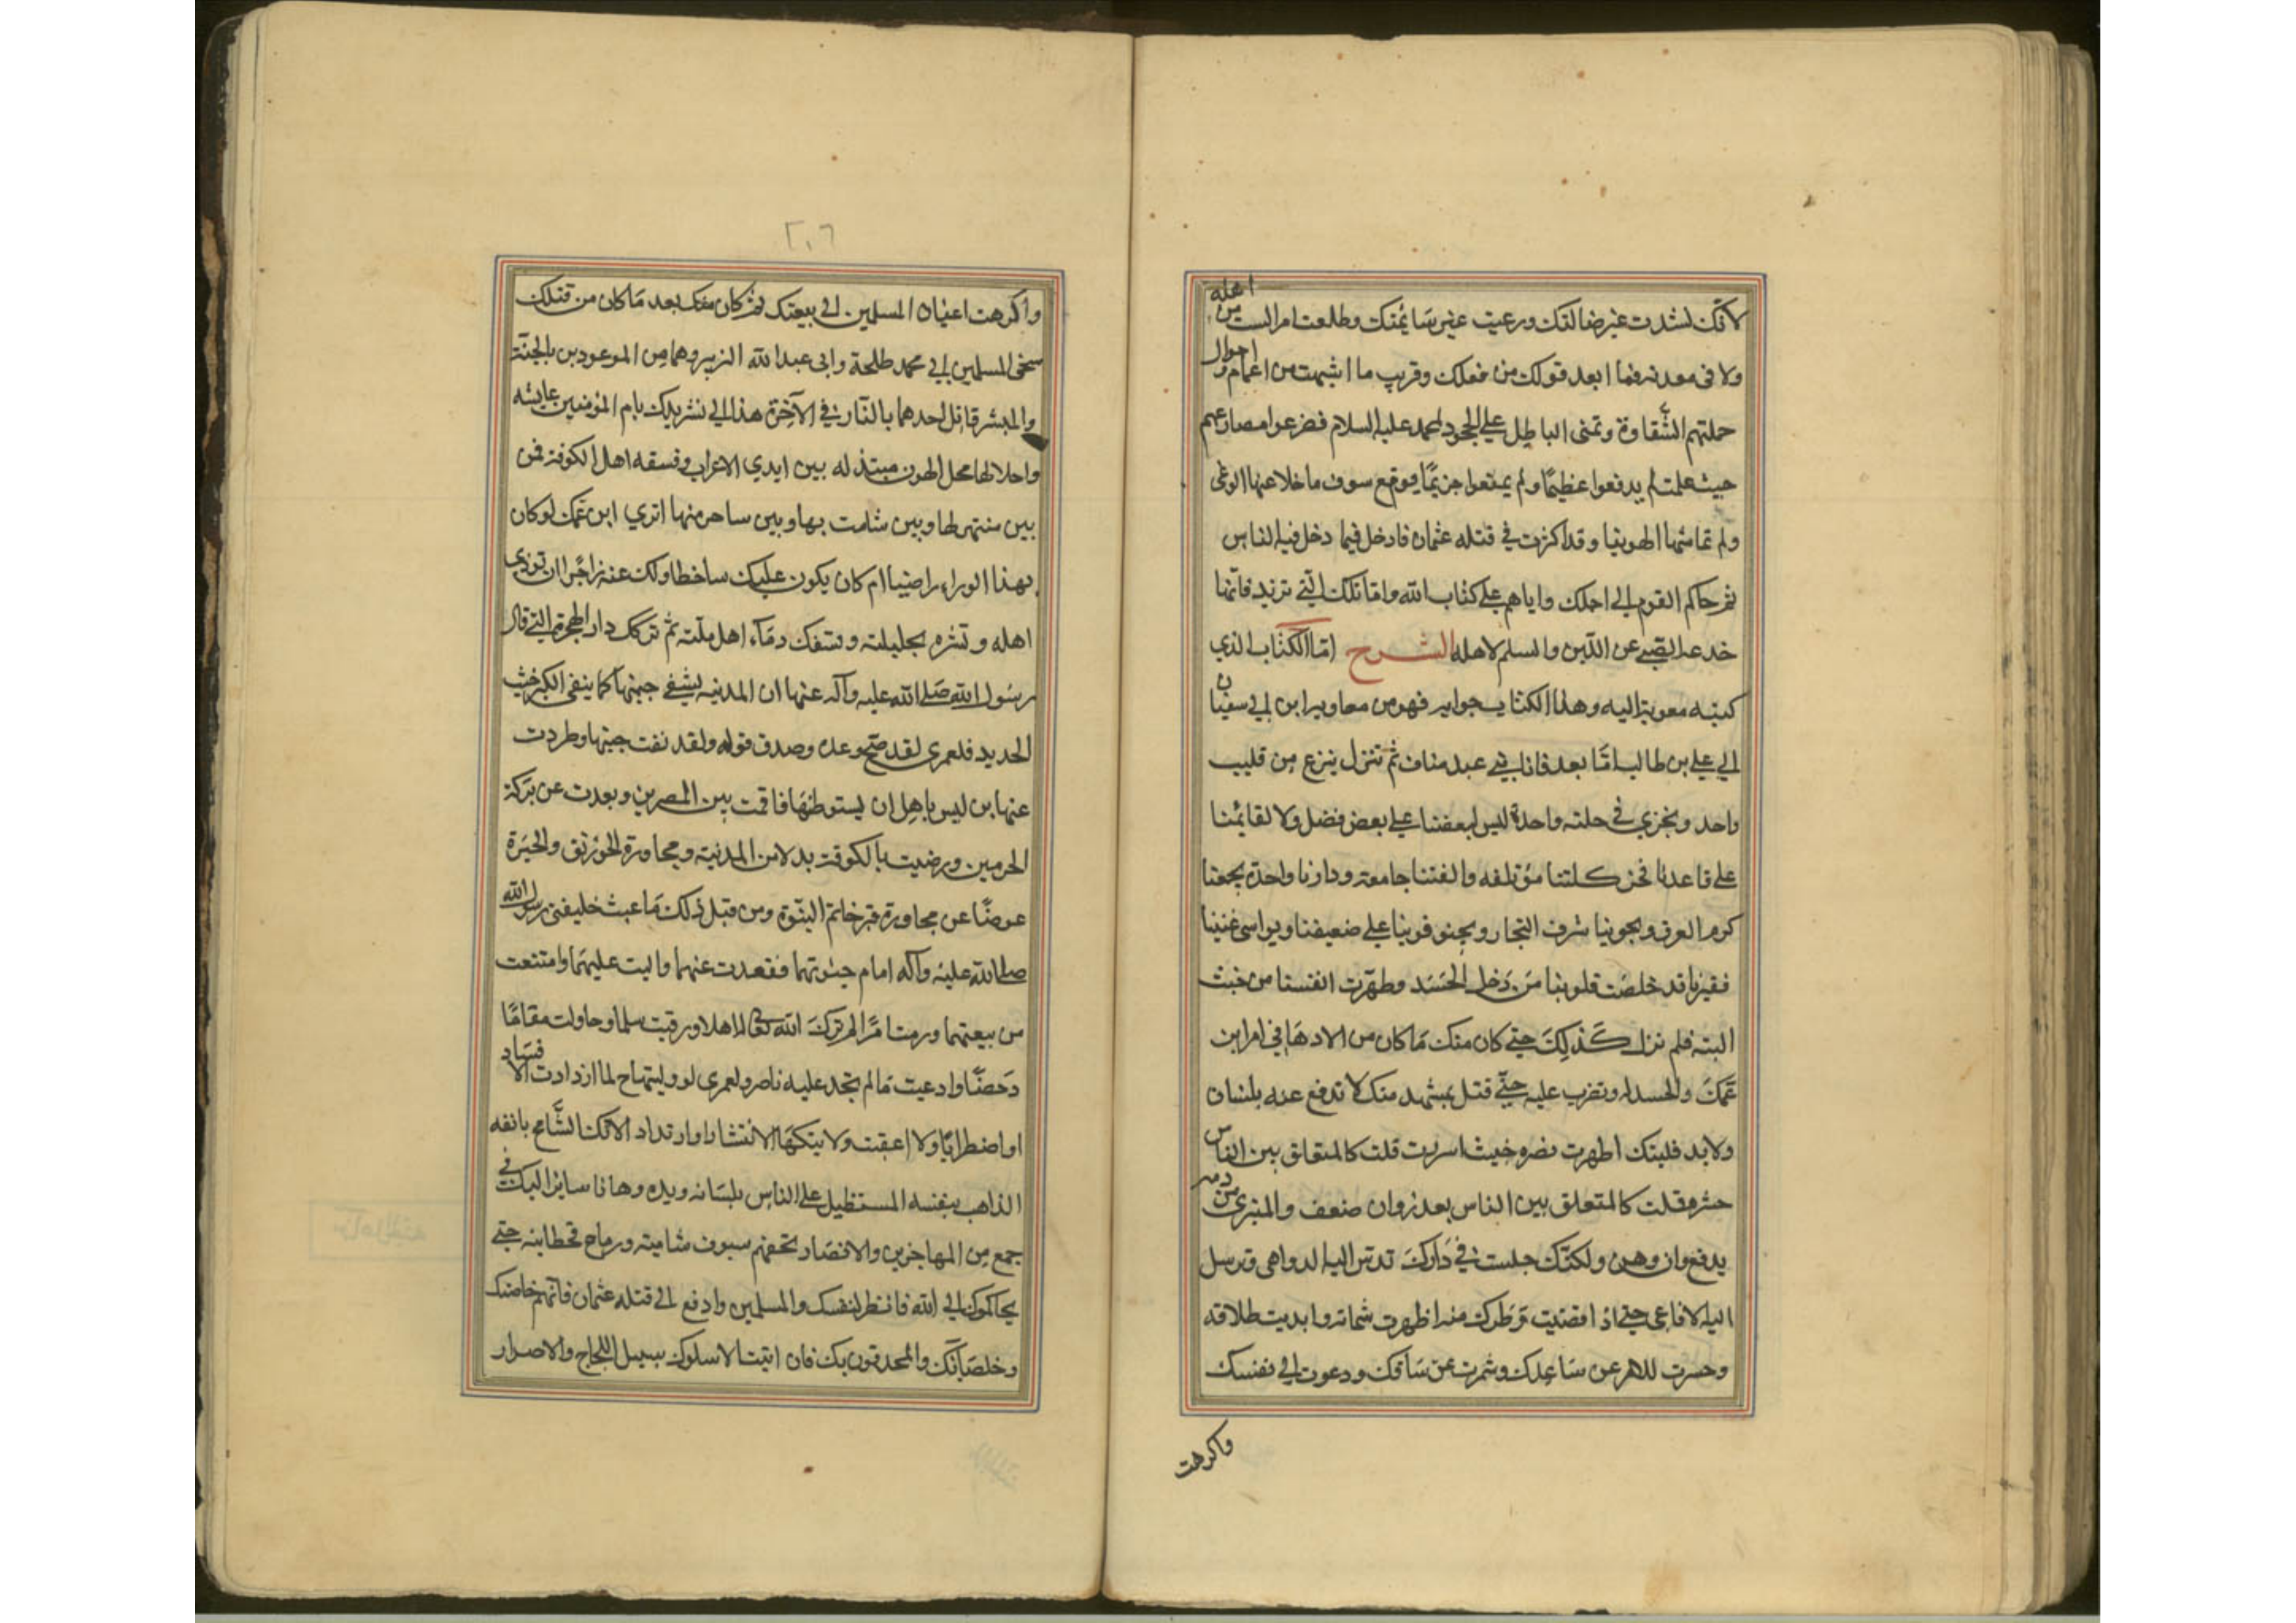 لانك نشدت غير ضالتك ورعيت غير سايمتك وطلعت امرا لست من اهله
ولا فى معدنه فما ابعد قولك من فعلك وقريب ما اشبهت من اعمام واحوال
حملتهم الشقاوة وتمنى الباطل على الجحود لمحمد عليه السلام فضرعوا مصارعهم
حيث علمت لم يدفعوا عظيما ولم يمنعوا حريما بوقع سوف ما خلا عنها الوغى
ولم تماشها الهوينا وقد اكثرت في قتله عثمان فادخل فيما دخل فيه الناس
ثم حاكم القوم الى احملك واياهم على كتاب الله واما تلك التي تريد فانها
خدعة الصبي عن اللبن والسلم لاهله الشرح اما الكتاب الذي
كتبه معوية اليه وهذا الكتاب جوابه فهو من معاويه ابن ابي سفيان
الي علي بن طالب اما بعد فانا بني عبد مناف ثم تنزل ينزع من قليب
واحد ويجزي في حلته واحدة ليس لبعضنا علي بعض فضل ولا لقائمنا
على قاعدنا فخر كلتنا مؤتلفه والفتنا جامعة ودارنا واحدة يجمعنا
كرم العرق ويجوينا شرف النجار ويجنو قوينا علي ضعيفنا ويواسى غنينا
فقيرنا قد خلصت قلوبنا من دخل الحسد وطهرت انفسنا من خبث
البته فلم نزل كذلك حتي كان منك ما كان من الادهان في امر ابن
عمك والحسد له وتضرب عليه حتي قتل بمشهد منك لا تدفع عنه بلسان
ولا يد فليتك اظهرت نصره حيث اسررت قلت كالمتعلق بين الناس
حشره وقلت كالمتعلق بين الناس بعذر وان ضعف والمتبري من دمه
يدفع وان وهن ولكنك جلست في دارك تدس اليه الدواهى وترسل
اليه الافاعى حتي اذا قضيت وطرك منه اظهرت شماته وابديت طلاقه
وحسرت للامر عن ساعدك وشمرت عن ساقك ودعوت الي نفسك
واكرهت
٢٠٦
واكرهت اعيان المسلمين الى بيعتك ثم كان منك بعد ما كان من قتلك
شخى المسلمين ابي محمد طلحة وابى عبد الله الزبير وهما من الموعودين بالجنة
والمبشر قاتل احدهما بالنار في الآخرة هذا الي تشريدك بام المؤمنين عايشه
واحلالها محل الهون مبتذله بين ايدي الاعراب وفسقه اهل الكوفة فمن
بين منتهر لها وبين شامت بها وبين ساخر منها اتري ابن عمك لو كان
بهذا الوراه راضيا ام كان يكون عليك ساخطا ولك عنه زاجرا ان توذي
اهله وتشره بحليلته وتسفك دماء اهل ملته ثم تركك دار الهجرة التي قال
رسول الله صلى الله عليه وآله عنها ان المدنيه لتنفى خبثها كما ينفى الكير خبث
الحديد فلعمرى لقد صح وعده وصدق قوله ولقد نفت خبثها وطردت
عنها من ليس باهل ان يستوطنها فاقمت بين المصرين وبعدت عن بركة
الحرمين ورضيت بالكوفة بدلا من المدنية ومجاورة الخورنق والحيرة
عوضا عن مجاورة قبر خاتم النبوة ومن قبل ذلك ما عبث خليفتى رسول الله
صلى الله عليه وآله امام حيوتهما فقعدت عنهما واليت عليهما وامتنعت
من بيعتهما ورمت امرا لم يرك الله تعالى له اهلا ورقيت سلما وحاولت مقاما
دحضا وادعيت ما لم تجد عليه ناصرا ولعمرى لو وليتها ح لما ازدادت الا فساد
او اضطرابا ولا اعقبت ولايتكها الا انتشارا وارتداد الانك الشامخ بانفه
الذاهب بنفسه المستطيل على الناس بلسانه ويده وها انا ساير اليك في
جمع من المهاجرين والانصار تحفهم سيوف شامية ورماح قحطانيه حتي
يحاكموك الي الله فانظر لنفسك والمسلمين وادفع الى قتله عثمان فانهم خاصتك
وخلصانك والمحدقون بك فان ابيت الا سلوك سبيل اللجاج والاصرار